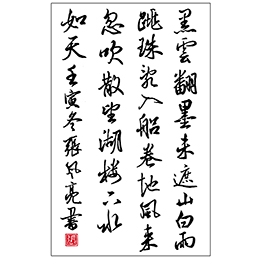 黑雲翻墨未遮山白雨
跳珠亂入船卷地風来
忽吹散望湖樓下水
如天壬寅冬張風亮書